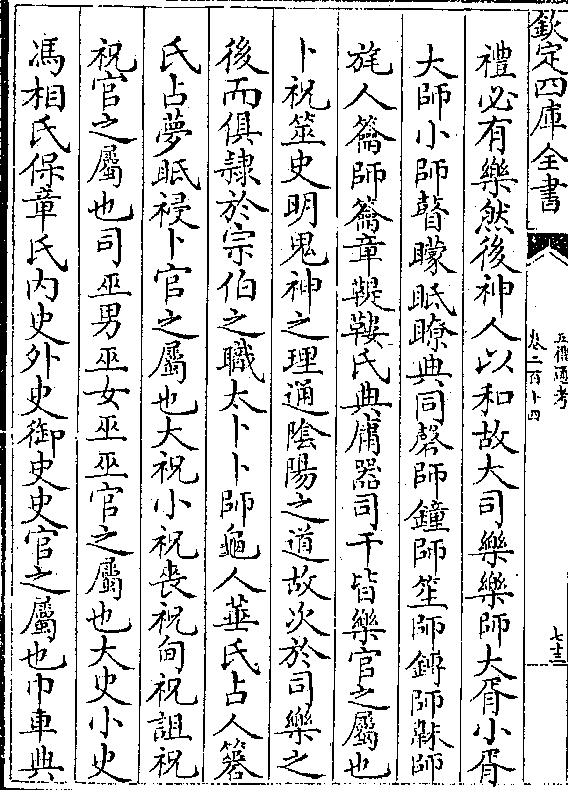 欽定四庫全書
五禮通考
卷二百十四
七十三
禮必有樂然後神人以和故大司樂樂師大胥小胥
大師小師瞽矇眡瞭典同磬師鐘師笙師鎛師韎師
旄人籥師籥章鞮鞻氏典庸器司干皆樂官之屬也
卜祝筮史明鬼神之理通陰陽之道故次於司樂之
後而俱隷於宗伯之職太卜卜師龜人菙氏占人簭
氏占夢眡祲卜官之屬也大祝小祝喪祝甸祝詛祝
祝官之屬也司巫男巫女巫巫官之屬也大史小史
馮相氏保章氏内史外史御史史官之屬也巾車典